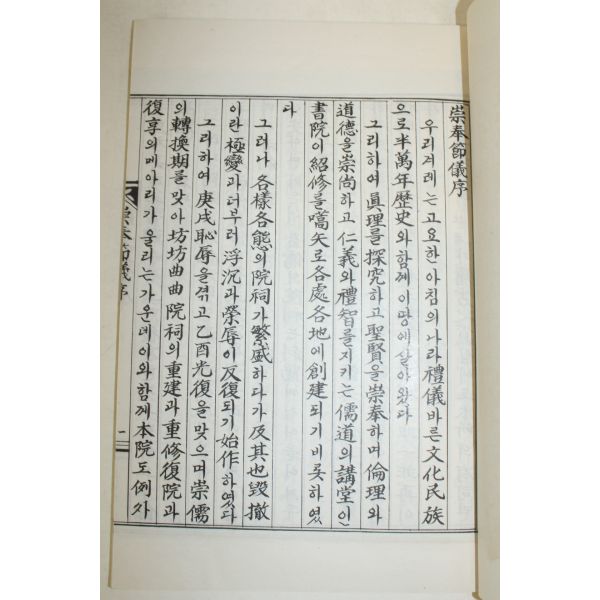 崇奉節儀序
우리겨레는고요한아침의나라禮儀바른文化民族
으로半萬年歷史와함께이땅에살아왔다
그리하여眞理를探究하고聖賢을崇奉하며倫理와
道德을崇尙하고仁義와禮智를지키는儒道의講堂인
書院이紹修를嚆矢로各處各地에創建되기비롯하였
다
그러나各樣各態의院祠가繁盛하다가及其也毁撤
이란極變과더부러浮沉과榮辱이反復되기始作하였다
그리하여庚戌恥辱을겪고乙酉光復을맞으며崇儒
의轉換期를맞아坊坊曲曲院祠의重建과重修復院과
復享의메아리가울리는가운데이와함께本院도例外
崇奉節儀序
一